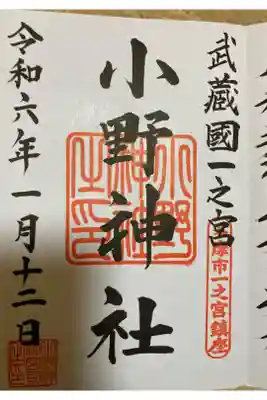 武藏國一之宮
多摩市一之宮鎮座
小野神社
小野神社之印
令和六年一月十二日